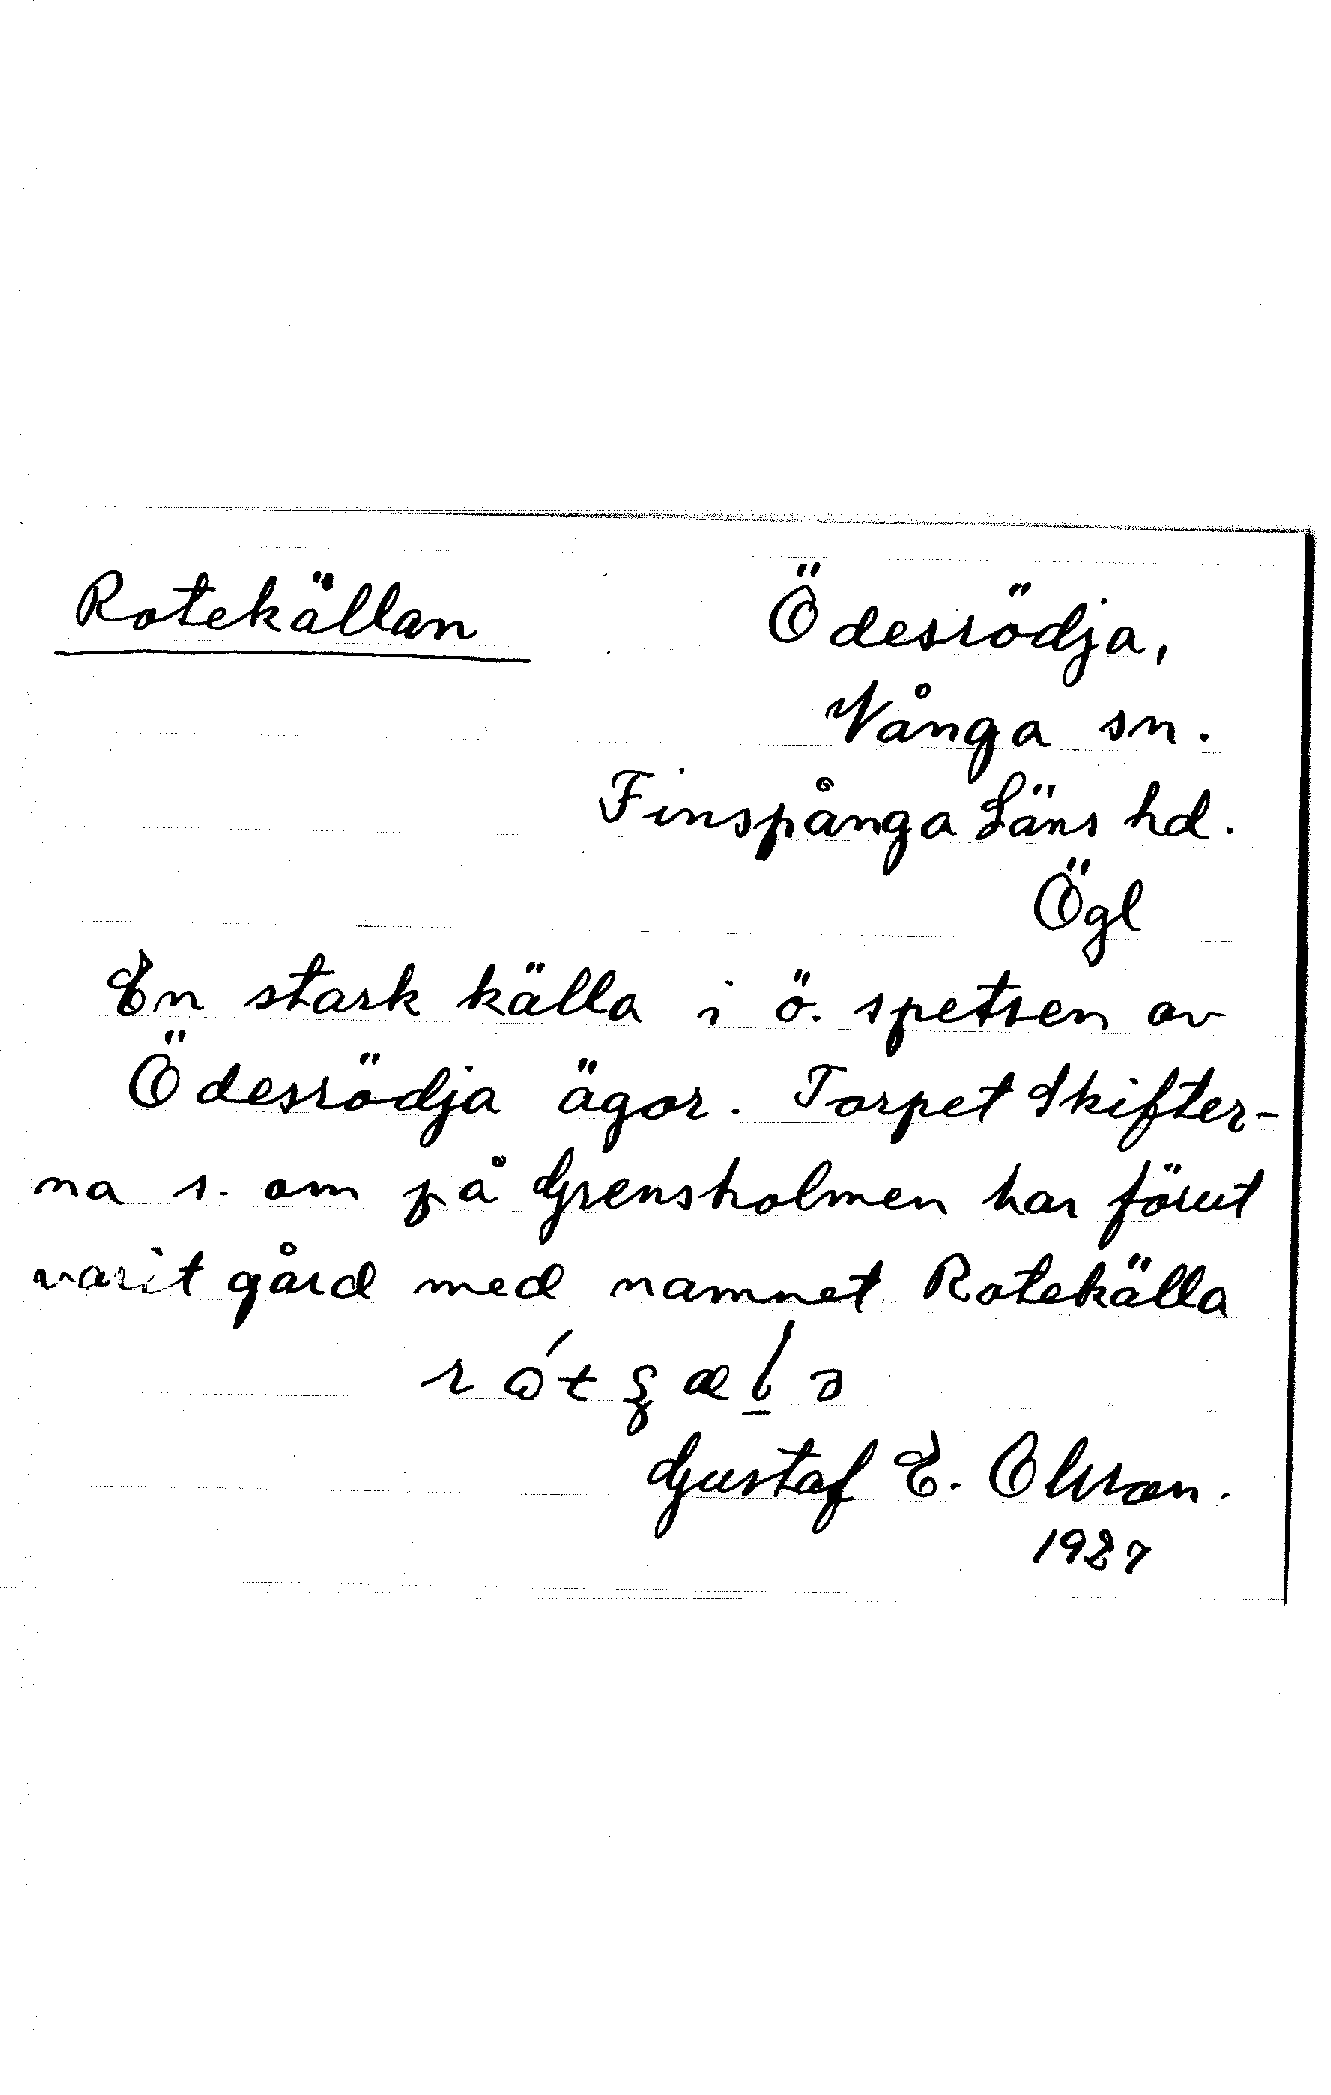 Rotekällan
Ödesrödja,
Vånga sn.
Finspånga Läns hd.
Ögl
En stark källa i ö. spetsen av
Ödesrödja ägor. Torpet Skifter-
na s. om på Grensholmen har förut
varit gård med namnet Rotekälla
Gustaf E. Olsson.
1927